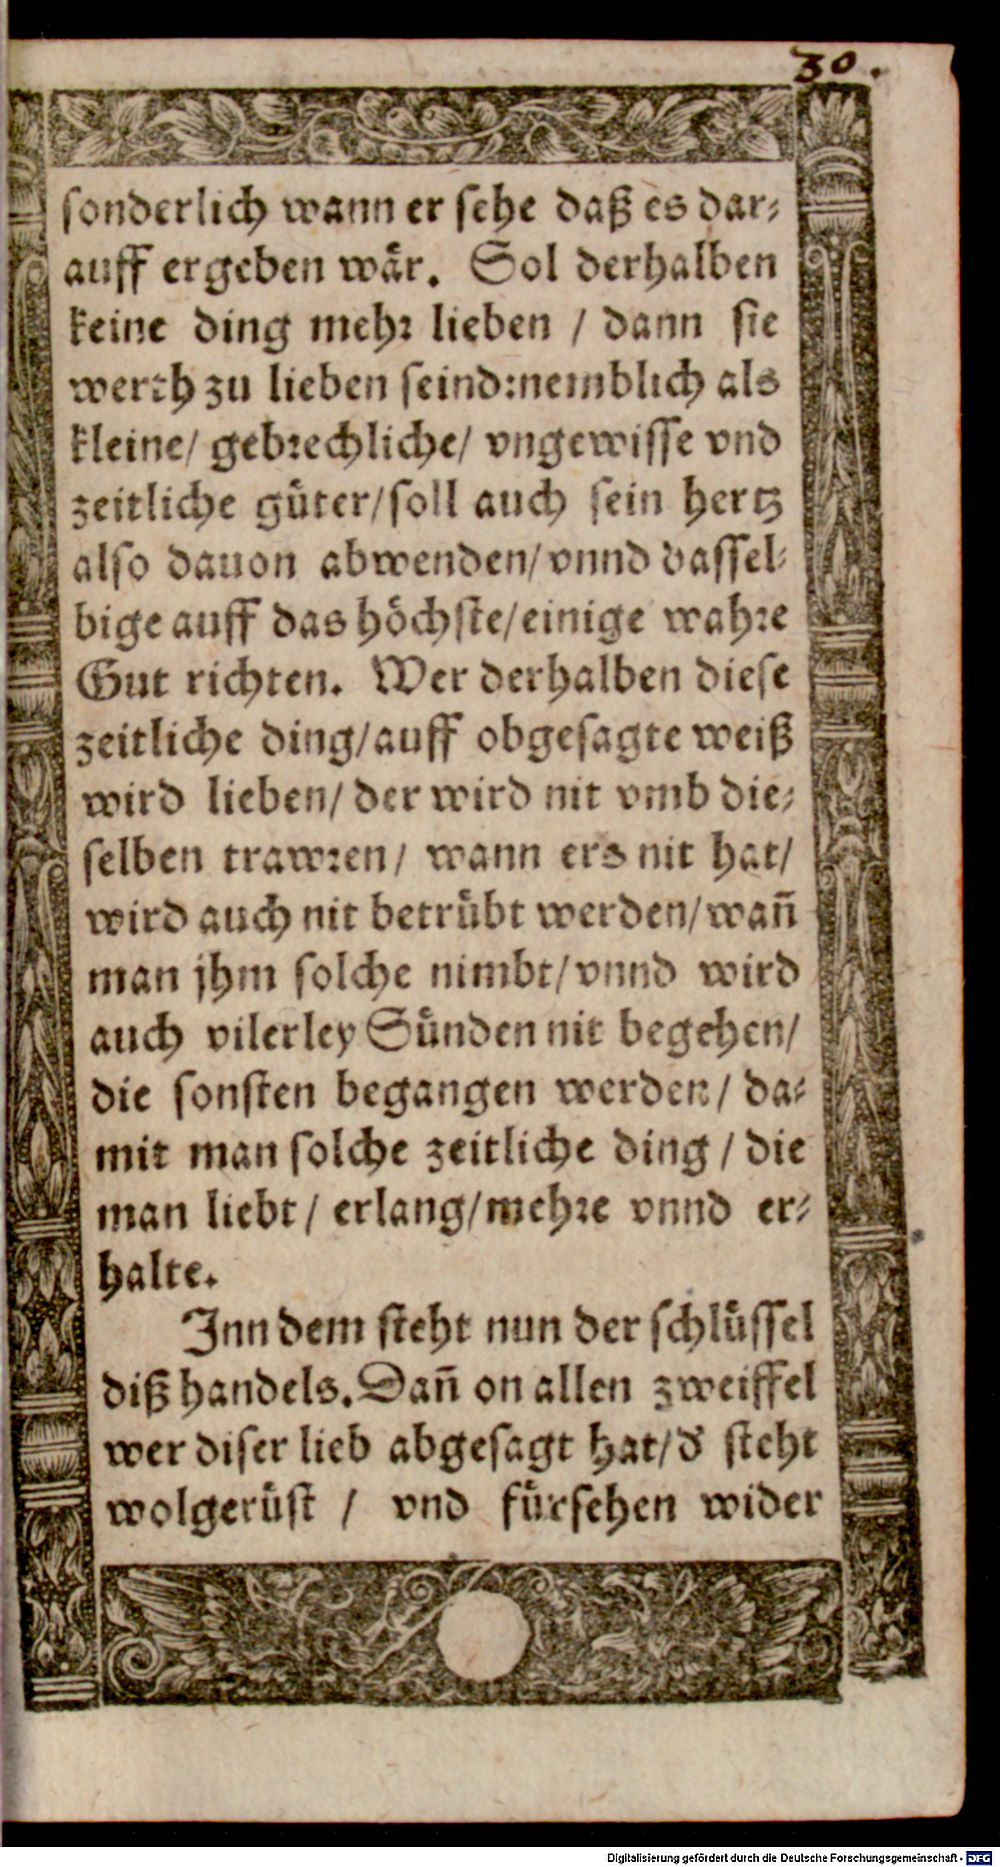 30.
sonderlich wann er sehe daß es dar-
auff ergeben wär. Sol derhalben
keine ding mehr lieben / dann sie
werth zu lieben seind: nemblich als
kleine/ gebrechliche/ vngewisse vnd
zeitliche güter/ soll auch sein hertz
also dauon abwenden/ vnnd dassel-
bige auff das höchste/ einige wahre
Gut richten. Wer derhalben diese
zeitliche ding/ auff obgesagte weiß
wird lieben/ der wird nit vmb die-
selben trawren/ wann ers nit hat/
wird auch nit betrübt werden/ wañ
man jhm solche nimbt/ vnnd wird
auch vilerley Sünden nit begehen/
die sonsten begangen werden/ da-
mit man solche zeitliche ding / die
man liebt/ erlang/ mehre vnnd er-
halte.
Inn dem steht nun der schlüssel
diß handels. Dañ on allen zweiffel
wer diser lieb abgesagt hat/ d' steht
wolgerüst / vnd fürsehen wider
Digitalisierung gefördert durch die Deutsche Forschungsgemeinschaft - DFG